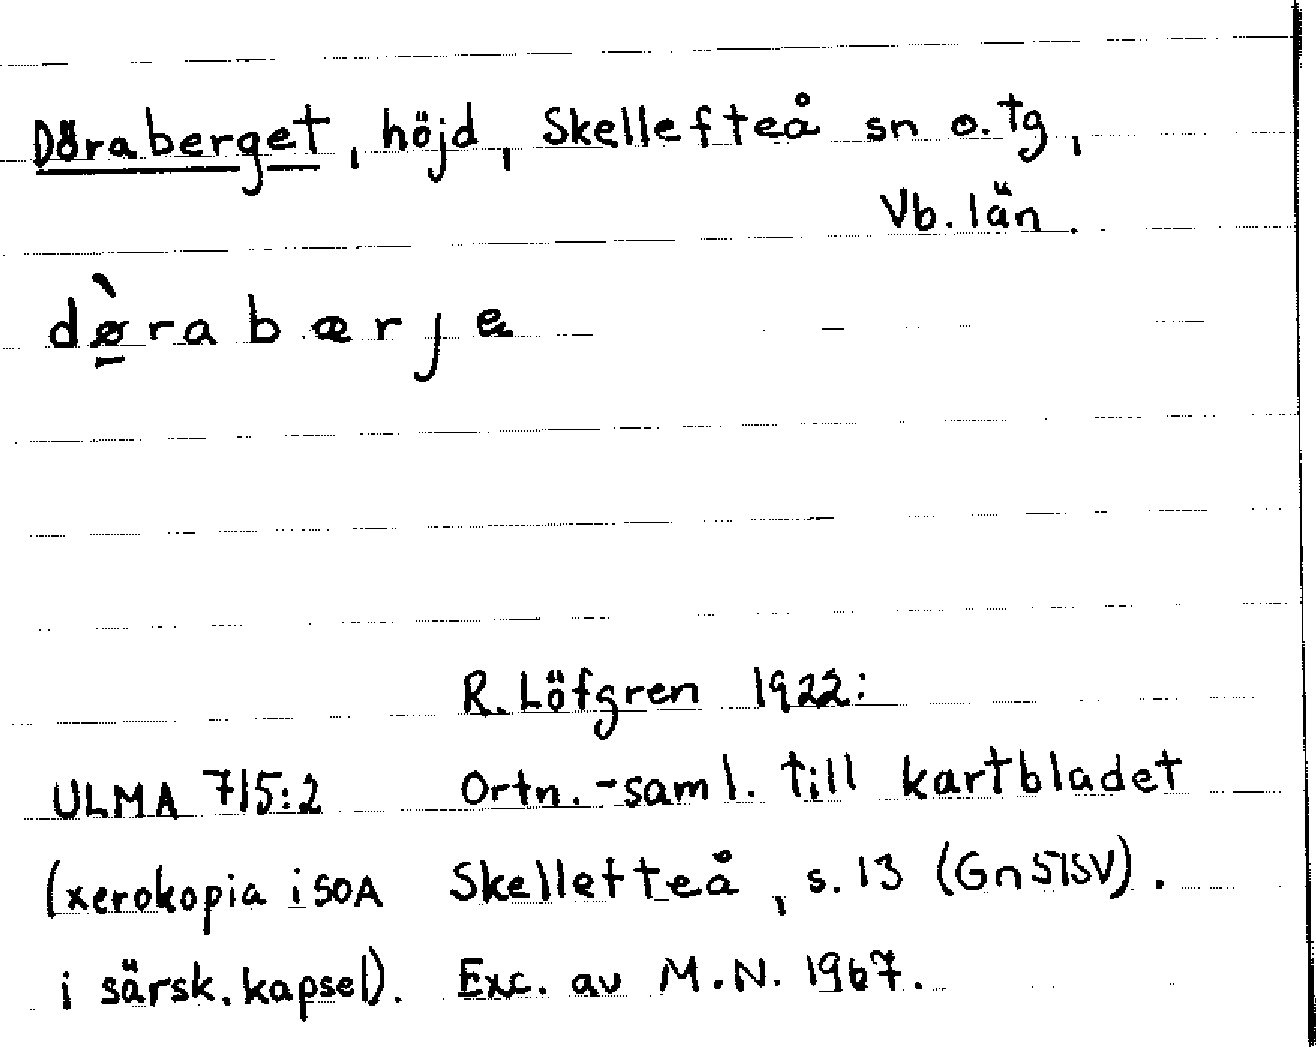 Döraberget, höjd, Skellefteå sn o. tg,
Vb. län.
dø̀rabærje
R. Löfgren 1922:
ULMA 715:2 Ortn.-saml. till kartbladet
(xerokopia i SOA Skellefteå, s. 13 (Gn STSV).
i särsk. kapsel). Exc. av M.N. 1967.